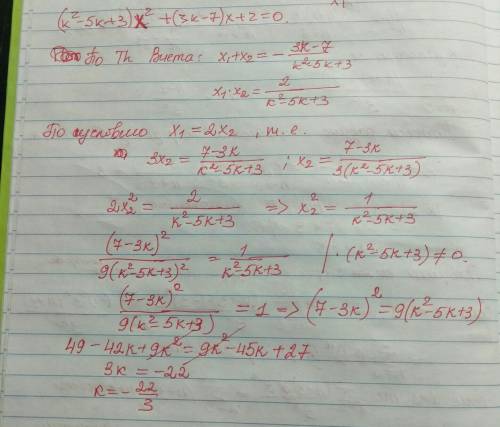 (k²-5k+3)x² + (3k-7)x + 2 = 0.
По Th Виета: x₁+x₂ = - (3k-7)/(k²-5k+3)
x₁·x₂ = 2/(k²-5k+3)
По условию x₁ = 2x₂ , т.е.
3x₂ = (7-3k)/(k²-5k+3) ; x₂ = (7-3k)/(3(k²-5k+3))
2x₂² = 2/(k²-5k+3) => x₂² = 1/(k²-5k+3)
(7-3k)²/(9(k²-5k+3)²) = 1/(k²-5k+3) | · (k²-5k+3) ≠ 0.
(7-3k)²/(9(k²-5k+3)) = 1 => (7-3k)² = 9(k²-5k+3)
49-42k+9k² = 9k²-45k+27
3k = -22
k = - 22/3